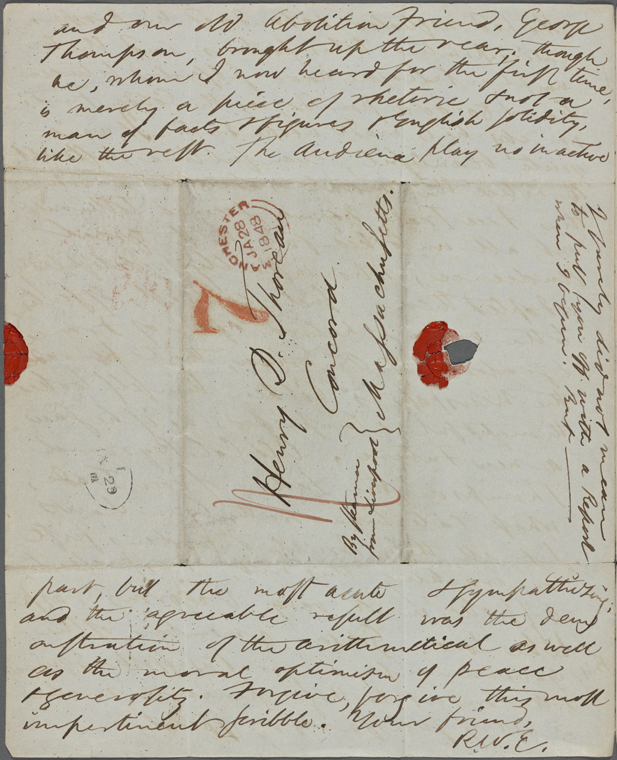 and our old Abolition Friend, George
Thompson, brought up the rear; though
he, whom I now heard for the first time,
is merely a piece of rhetoric & not a
man of facts & figures & English solidity,
like the rest. The Audience play no inactive
part, but the most acute & sympathizing;
and the agreeable result was the dem
onstration of the arithmetical as well
as the moral optimism of peace
& generosity. Forgive, forgive this most
impertinent scribble. Your friend,
R.W.E.
I surely did not mean
to put you off with a Report
when I begun. But
MANCHESTER
JA 28
1848
7
Henry D. Thoreau
Concord
Massachusetts.
By Steamer
from Liverpool
29